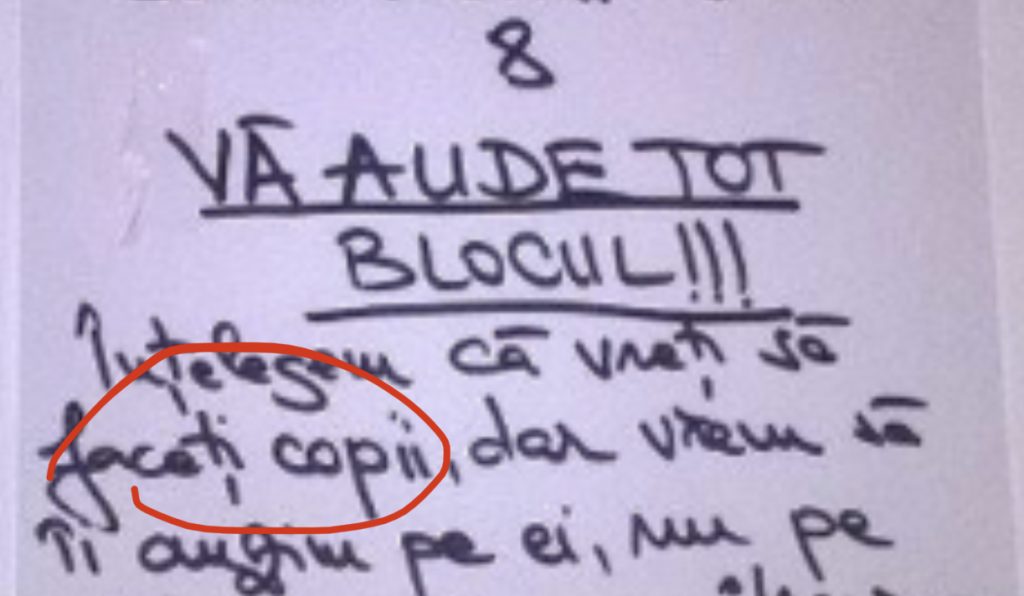 8
VĂ AUDE TOT
BLOCUL!!!
Înțelegem că vreți să
faceți copii, dar vrem să
îi auzim pe ei, nu pe